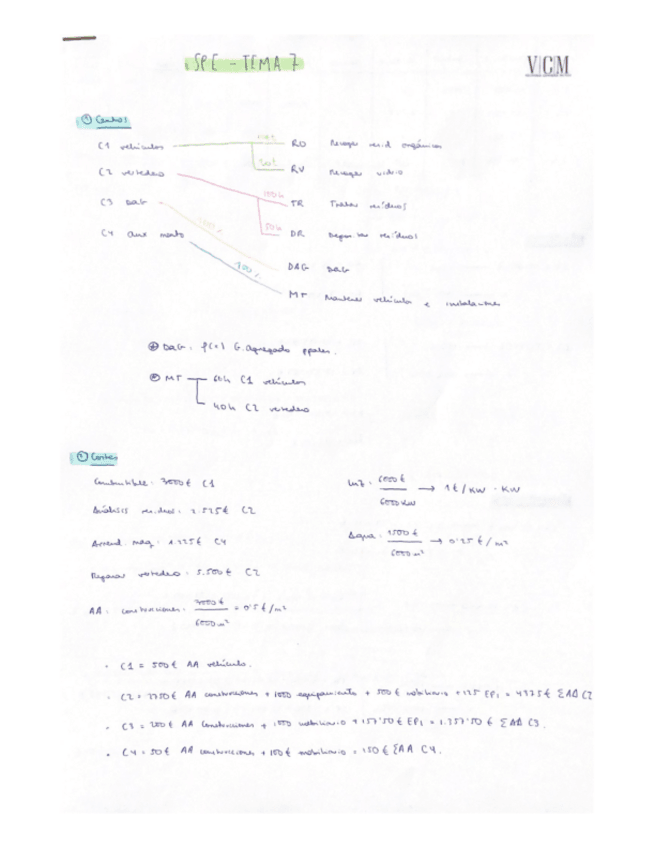 SPE - TEMA 7
VCM
① Centros
C1 vehículos
RO Recoger resid orgánicos
50t RV Recoger vidrio
C2 vertedero
100h TR Tratar residuos
C3 DAG
50h DR Depositar residuos
C4 aux mento
100%
100%
DAG DAG
MT Mantener vehículo e instalaciones
DAG: f(x) G. agregado ppales.
MT 60h C1 vehículos
40h C2 vertedero
② Costes
Combustible: 3000€ C1
Luz: 6000€ / 6000KW → 1€/KW · KW
Análisis residuos: 2.525€ C2
Arrend. maq: 1.225€ C4
Agua: 1500€ / 6000m² → 0'25€/m²
Reparar vertedero: 5.500€ C2
AA: construcciones: 3000€ / 6000m² = 0'5€/m²
· C1 = 500€ AA vehículo.
· C2 = 2750€ AA construcciones + 1000 equipamiento + 500€ mobiliario + 125 EPI = 4375€ ΣAA C2
· C3 = 200€ AA Construcciones + 1000 mobiliario + 157'50€ EPI = 1.357'50€ ΣAA C3.
· C4 = 50€ AA construcciones + 100€ mobiliario = 150€ ΣAA C4.